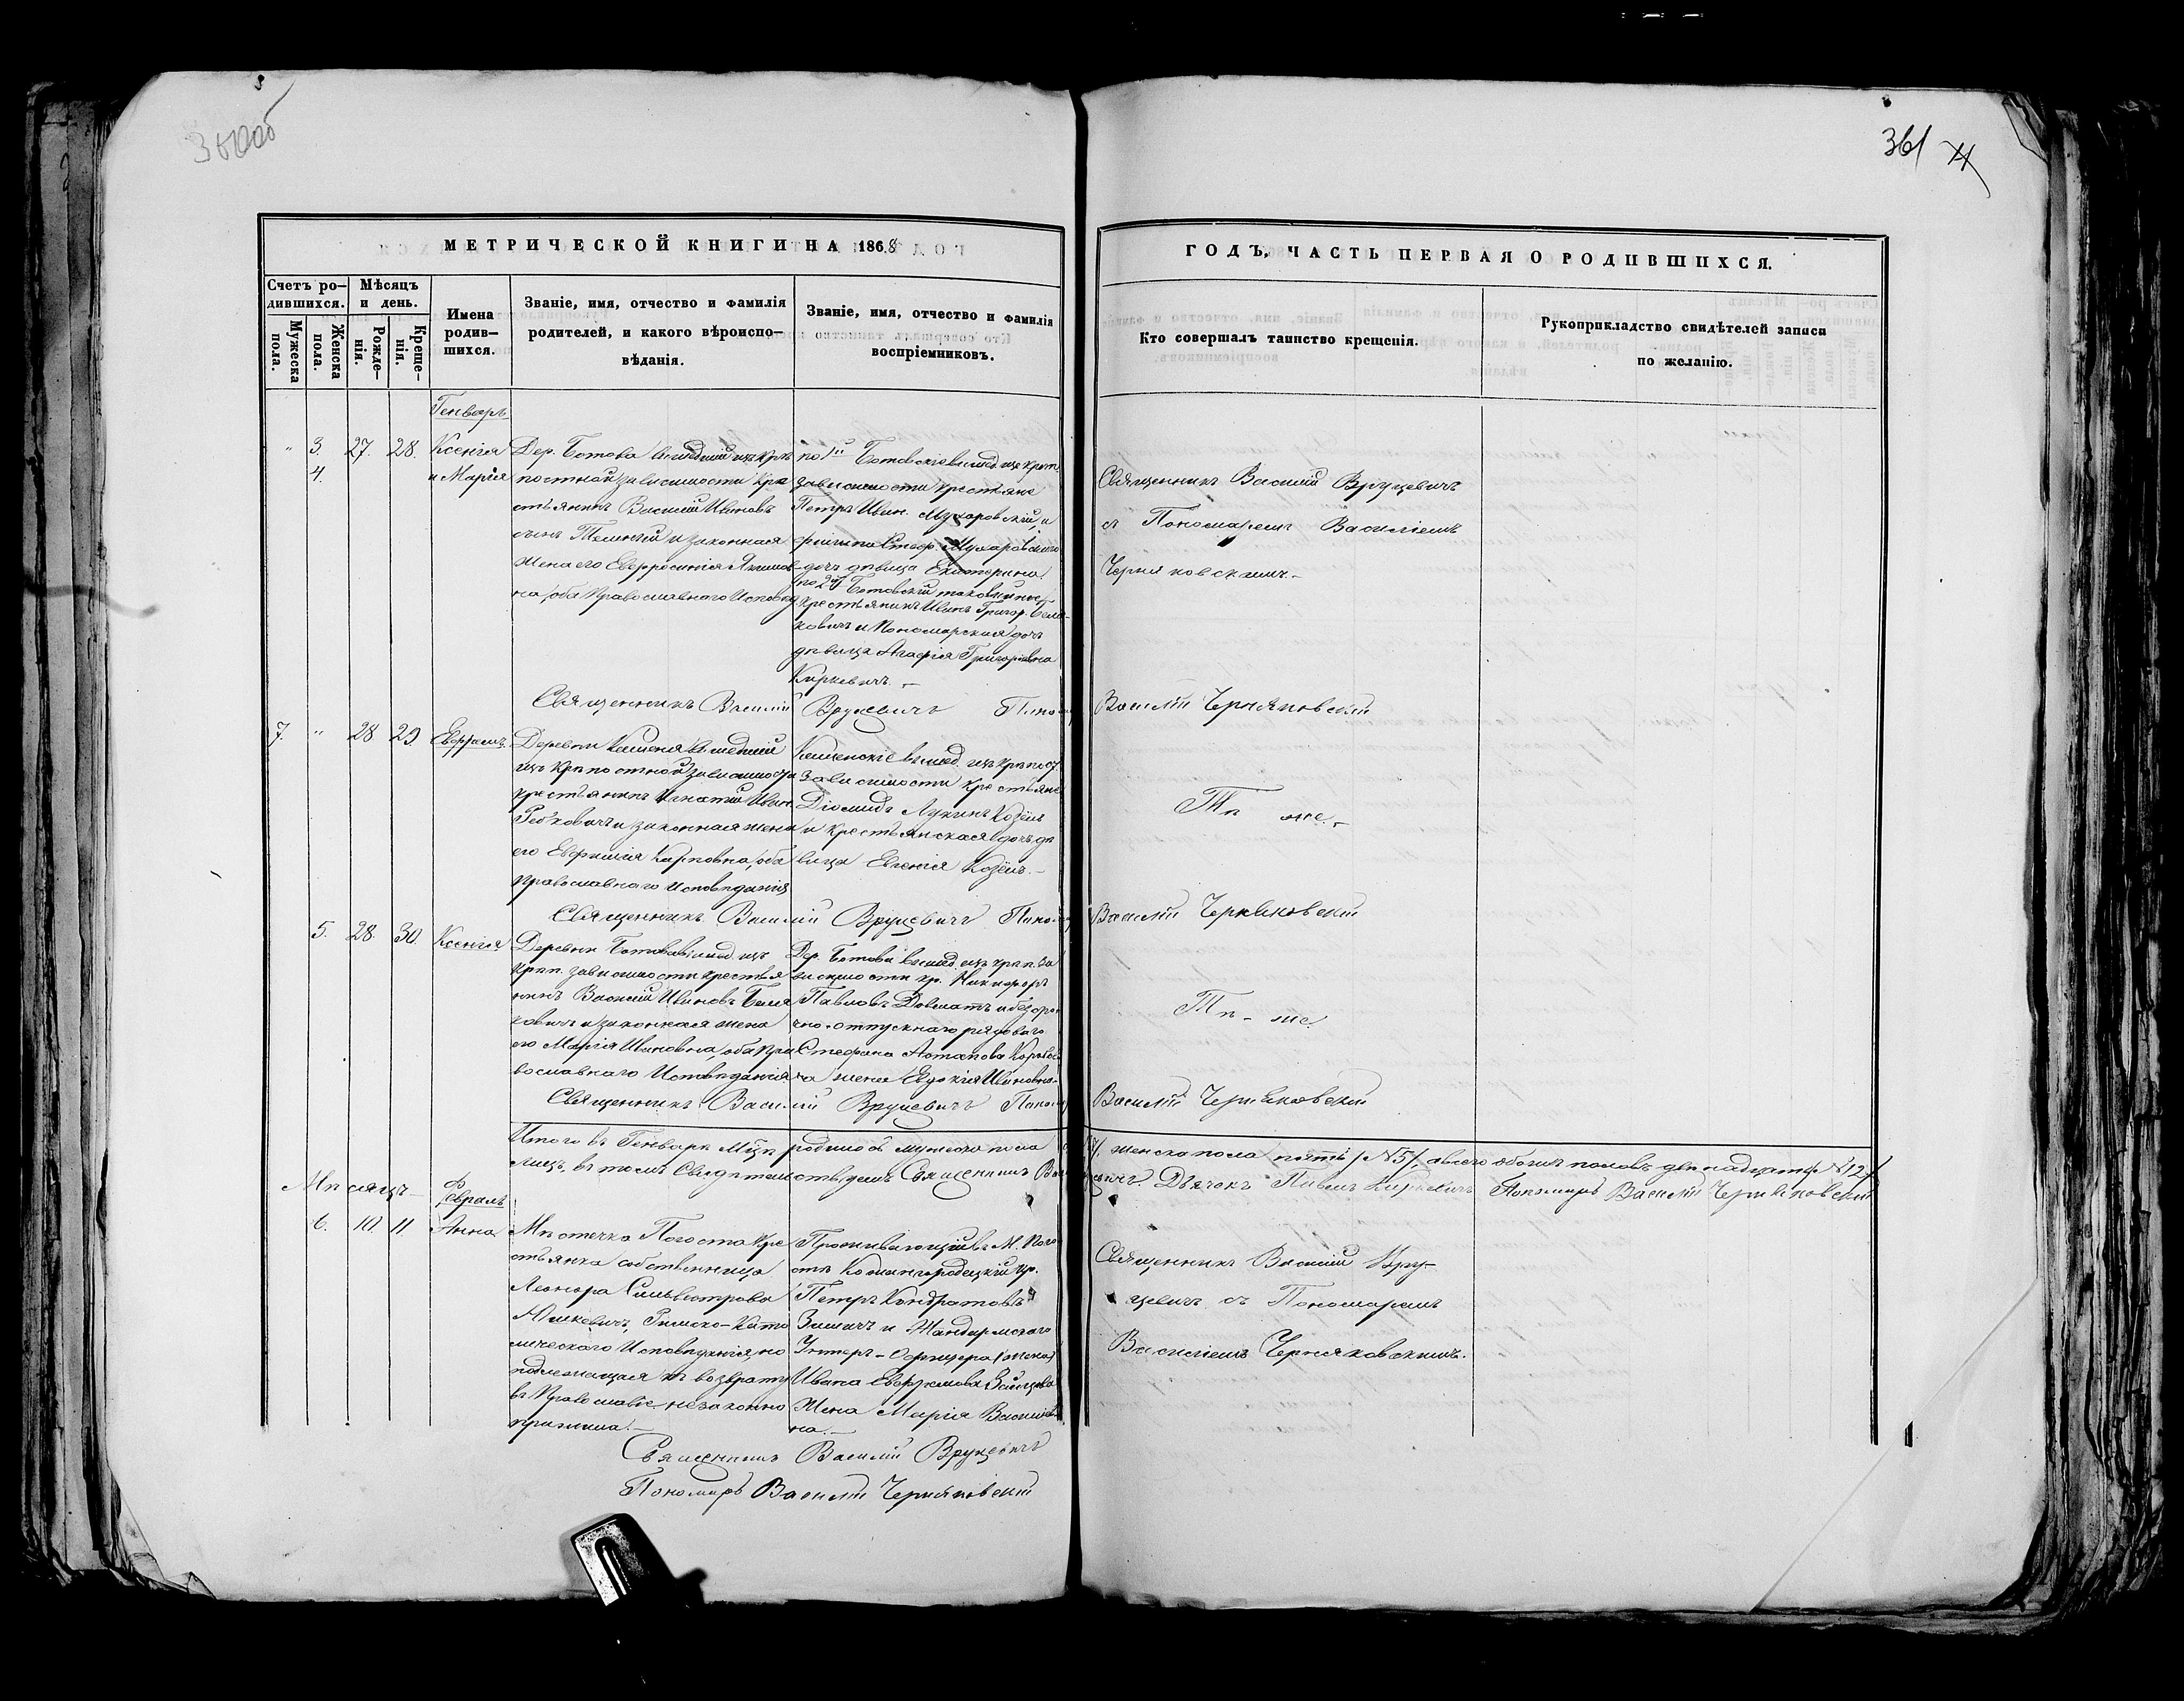 361
МЕТРИЧЕСКОЙ КНИГИ НА 1868
ГОДЪ, ЧАСТЬ ПЕРВАЯ О РОДИВШИХСЯ.
Счетъ ро-
дившихся.
Мужеска пола.
Женска пола.
Мѣсяцъ
и день.
Рожде-
нія.
Креще-
нія.
Имена
родив-
шихся.
Званіе, имя, отчество и фамилія
родителей, и какого вѣроиспо-
вѣданія.
Званіе, имя, отчество и фамилія
воспріемниковъ.
Кто совершалъ таинство крещенія.
Рукоприкладство свидѣтелей записи
по желанію.
Генварь
" 3. 27. 28. Ксенія
4. и Марія
Дер. Ботова вышедшій изъ крѣ
постной зависимости кре
стьянинъ Василій Ивановъ
сынъ и законная
жена его Евфросинія Яким
на, оба Православнаго Исповѣд
по 1й Ботовскіе вышед. изъ крѣп.
зависимости крестьяне
Петръ Иван. Мухаровскій, и
Стеф. Мухаровскаго
дочь дѣвица Екатерина,
по 2й Ботовскій таковый же
крестьянинъ Иванъ Григор. Беля-
ковичъ и Пономарская дочь
дѣвица Агафія Григоріевна
Киркевичъ.-
Священникъ Василій Вруцевичъ
съ Пономаремъ Василіемъ
Черняковскимъ.-
Священникъ Василій Вруцевичъ Поном Василій Черняковскій
7. " 28 29. Евфремъ.
Деревни Каменя вышедшій
изъ крѣпостной зависимости
крестьянинъ Игнатій Иван.
и законная жена
его Евфимія Карповна, оба
Православнаго Исповѣданія
Каменскіе вышед. изъ крѣпос.
зависимости крестьяне
Діомидъ Лукинъ Козёлъ
и крестьянская дочь дѣ
вица Евгенія Козёлъ.-
Тѣ же.-
Священникъ Василій Вруцевичъ Поном Василій Черняковскій
5. 28. 30. Ксенія
Деревни Ботова вышед. изъ
крѣп. зависимости крестья
нинъ Василій Ивановъ Беля
ковичъ и законная жена
его Марія Ивановна, оба Пра
вославнаго Исповѣданія
Дер. Ботова вышед. изъ крѣп. за
висимости кр. Никифоръ
Павловъ Довматъ и безсро
чно-отпускнаго рядоваго
Стефана Астапова
жена Евдокія Ивановна.-
Тѣ- же
Священникъ Василій Вруцевичъ Поном Василій Черняковскій
Итого въ Генварѣ Мцѣ родилось мужеска пола /7/, женска пола пять /№5/, а всего обоихъ половъ двѣнадцать /№12/
лицъ, въ томъ Свидѣтельствуемъ Священникъ Вас Вруцевичъ. Дьячекъ Павелъ Киркевичъ Пономарь Василій Черняковскій
Мѣсяцъ Февраль
6. 10. 11. Анна
Мѣстечка Погоста кре
стьянка собственница
Леонора Сильвестрова
Римско-Като
лическаго Исповѣданія, но
подлежащая къ возврату
въ Православіе незаконно
прижила.-
Проживающій въ М. Пого
стѣ кр.
Петръ Кондратовъ
и Жандармскаго
Унтеръ-Офицера
Ивана Евфремова Зайцева
жена Марія Василіев
на.-
Священникъ Василій Вру-
цевичъ съ Пономаремъ
Василіемъ Черняковскимъ.
Священникъ Василій Вруцевичъ
Пономарь Василій Черняковскій